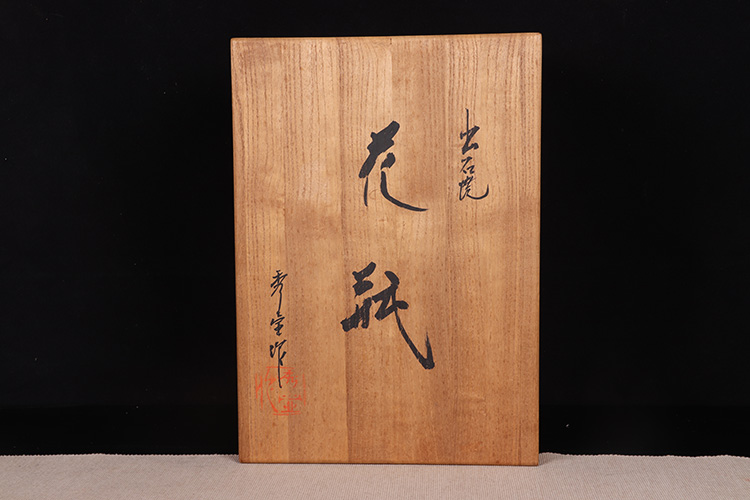 出石焼
花瓶
秀宝作